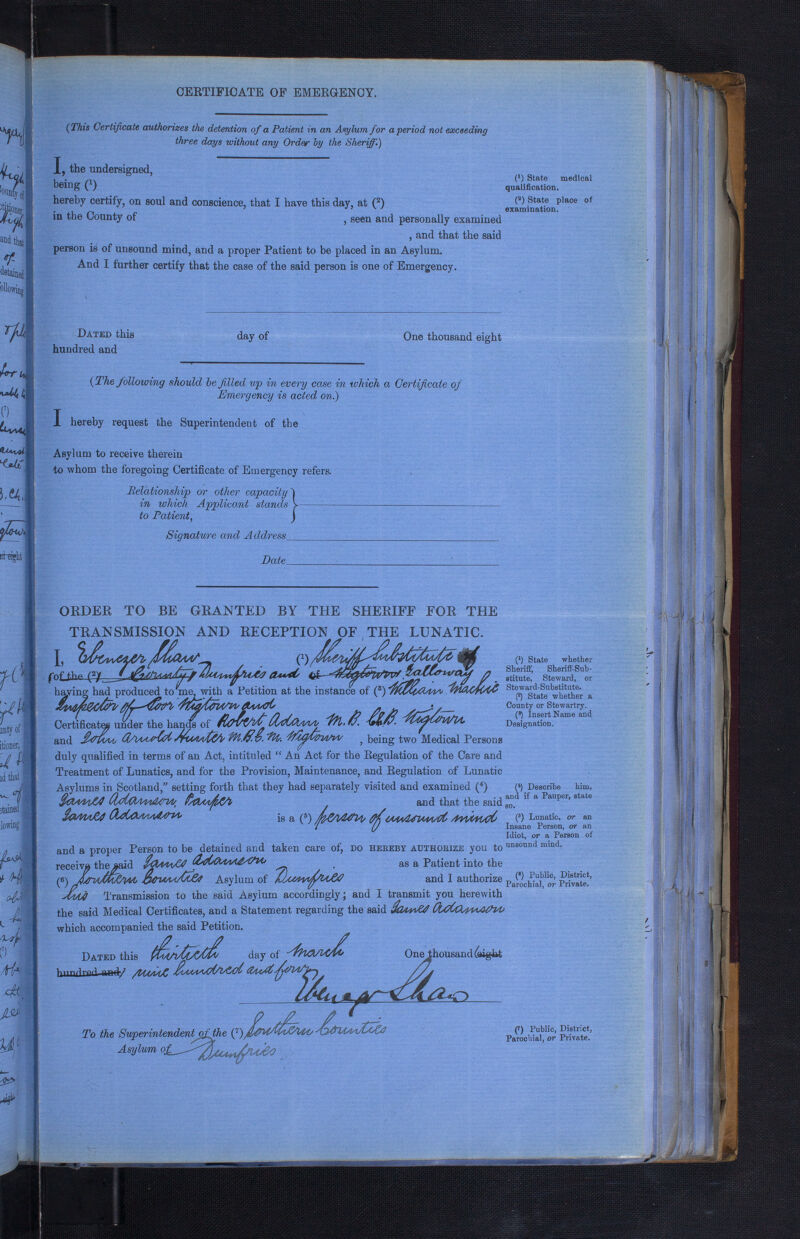 CERTIFICATE OF EMERGENCY.
(This Certificate authorizes the detention of a Patient in an Asylum for a period not exceeding
three days without any Order by the Sheriff.)
I, the undersigned,
being (¹)
hereby certify, on soul and conscience, that I have this day, at (²)
in the County of , seen and personally examined
, and that the said
person is of unsound mind, and a proper Patient to be placed in an Asylum.
And I further certify that the case of the said person is one of Emergency.
(¹) State medical
qualification.
(²) State place of
examination.
DATED this day of One thousand eight
hundred and
(The following should be filled up in every case in which a Certificate of
Emergency is acted on.)
I hereby request the Superintendent of the
Asylum to receive therein
to whom the foregoing Certificate of Emergency refers.
Relationship or other capacity
in which Applicant stands
to Patient,
Signature and Address
Date
ORDER TO BE GRANTED BY THE SHERIFF FOR THE
TRANSMISSION AND RECEPTION OF THE LUNATIC.
I, Ebenezer Shaw (¹) Sheriff Substitute of
(of the (²) County of Dumfries and of Wigtown Galloway
having had produced to me, with a Petition at the instance of (³) William Mackie
Inspector of Poor Wigtown and
Certificates under the hands of Robert Adam M.B. Ch.B. Wigtown
and John Arnold Hunter M.B.C.M. Wigtown , being two Medical Persons
duly qualified in terms of an Act, intituled “ An Act for the Regulation of the Care and
Treatment of Lunatics, and for the Provision, Maintenance, and Regulation of Lunatic
Asylums in Scotland,” setting forth that they had separately visited and examined (⁴)
James Adamson, Pauper and that the said
James Adamson is a (⁵) person of unsound mind
and a proper Person to be detained and taken care of, DO HEREBY AUTHORIZE you to
receive the said James Adamson as a Patient into the
(⁶) Southern Counties Asylum of Dumfries and I authorize
his Transmission to the said Asylum accordingly; and I transmit you herewith
the said Medical Certificates, and a Statement regarding the said James Adamson
which accompanied the said Petition.
(¹) State whether
Sheriff, Sheriff-Sub-
stitute, Steward, or
Steward-Substitute.
(²) State whether a
County or Stewartry.
(³) Insert Name and
Designation.
(⁴) Describe him,
and if a Pauper, state
so.
(⁵) Lunatic, or an
Insane Person, or an
Idiot, or a Person of
unsound mind.
(⁶) Public, District,
Parochial, or Private.
DATED this thirtieth day of March One thousand (eight
hundred and) nine hundred and four
Ebenezer Shaw
To the Superintendent of the (⁷) Southern Counties
Asylum of Dumfries
(⁷) Public, District,
Parochial, or Private.